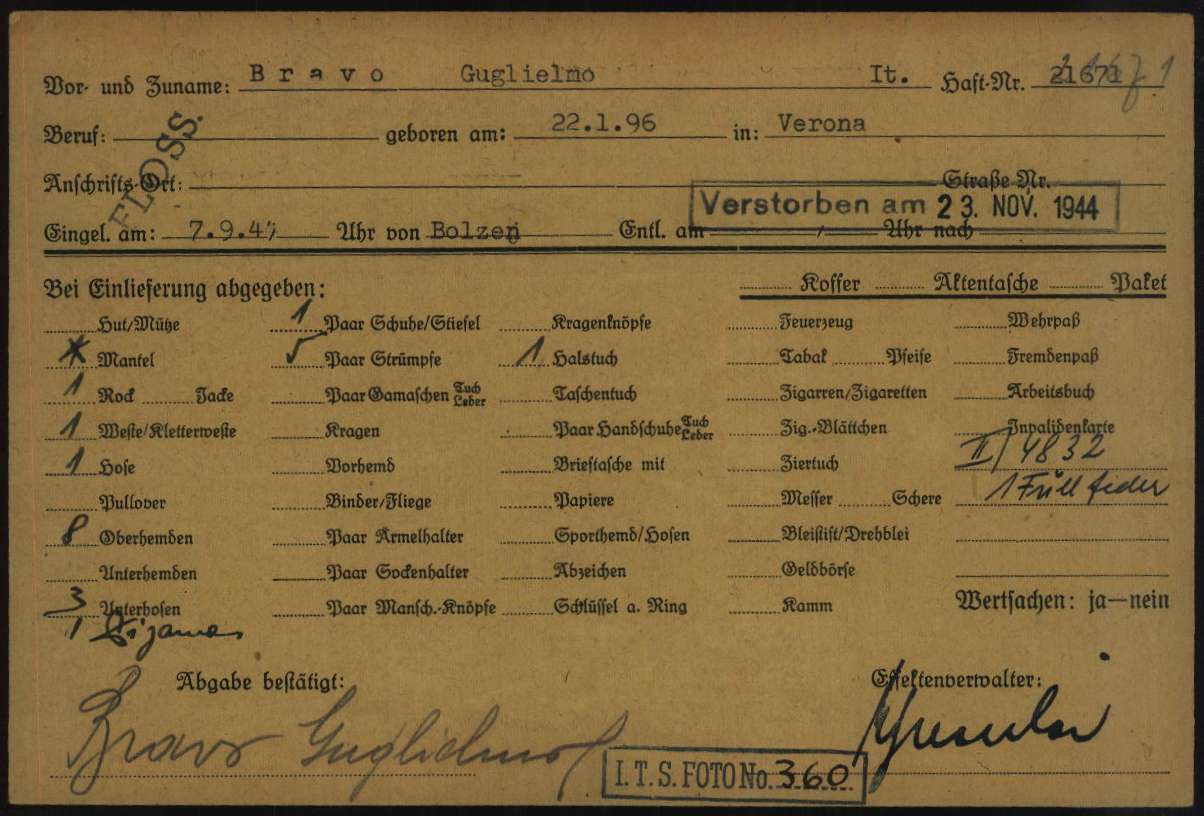 Vor- und Zuname: Bravo Guglielmo It. Haft-Nr. 21671
FLOSS.
Beruf: geboren am: 22.1.96 in: Verona
Anschrifts-Ort: Straße Nr.
Verstorben am 23. NOV. 1944
Eingel. am: 7.9.4 Uhr von Bolzen Entl. am Uhr nach
Bei Einlieferung abgegeben: Koffer Aktentasche Paket
Hut/Mütze 1 Paar Schuhe/Stiefel Kragenknöpfe Feuerzeug Wehrpaß
Mantel 5 Paar Strümpfe 1 Halstuch Tabak Pfeife Fremdenpaß
1 Rock Jacke Paar Gamaschen Tuch Leder Taschentuch Zigarren/Zigaretten Arbeitsbuch
1 Weste/Kletterweste Kragen Paar Handschuhe Tuch Leder Zig.-Blättchen Invalidenkarte
1 Hose Vorhemd Brieftasche mit Ziertuch II/4832
Pullover Binder/Fliege Papiere Messer Schere 1 Füllfeder
8 Oberhemden Paar Ärmelhalter Sporthemd/Hosen Bleistift/Drehblei
Unterhemden Paar Sockenhalter Abzeichen Geldbörse
3 Unterhosen Paar Mansch.-Knöpfe Schlüssel a. Ring Kamm Wertsachen: ja—nein
1 Pijama
Abgabe bestätigt: Effektenverwalter:
Bravo Guglielmo
I.T.S. FOTO No. 360